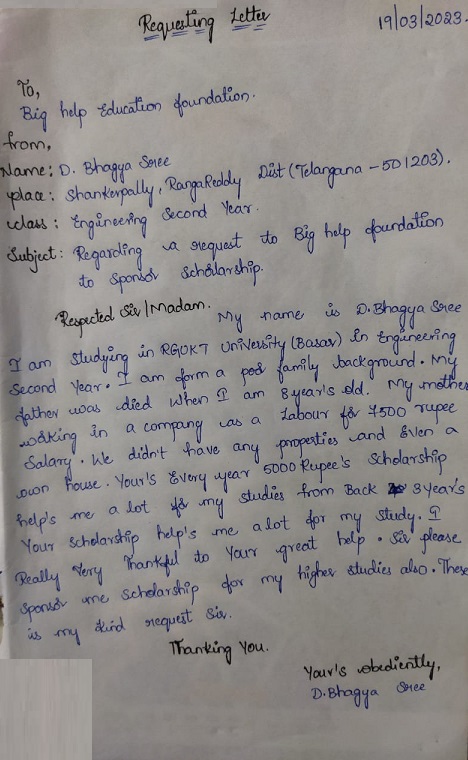 Requesting Letter
19/03/2023.
To,
Big help Education foundation.
from,
Name: D. Bhagya Sree
place: Shankerpally, RangaReddy Dist (Telangana - 501203).
class: Engineering Second Year.
Subject: Regarding a request to Big help foundation
to Sponsor Scholarship.
Respected Sir/Madam.
My name is D.Bhagya Sree
I am Studying in RGUKT University (Basar) in Engineering
Second Year. I am form a poor family background. My
father was died when I am 8 year's old. My mother
working in a company as a Labour for 7500 rupee
Salary. We didn't have any properties and Even a
own house. Your's Every year 5000 Rupee's Scholarship
help's me a lot for my studies from Back 3 Year's
Your Scholarship help's me a lot for my Study. I
Really Very Thankful to Your great help. Sir please
Sponsor me Scholarship for my higher studies also. These
is my kind request Sir.
Thanking You.
Your's obediently,
D.Bhagya Sree